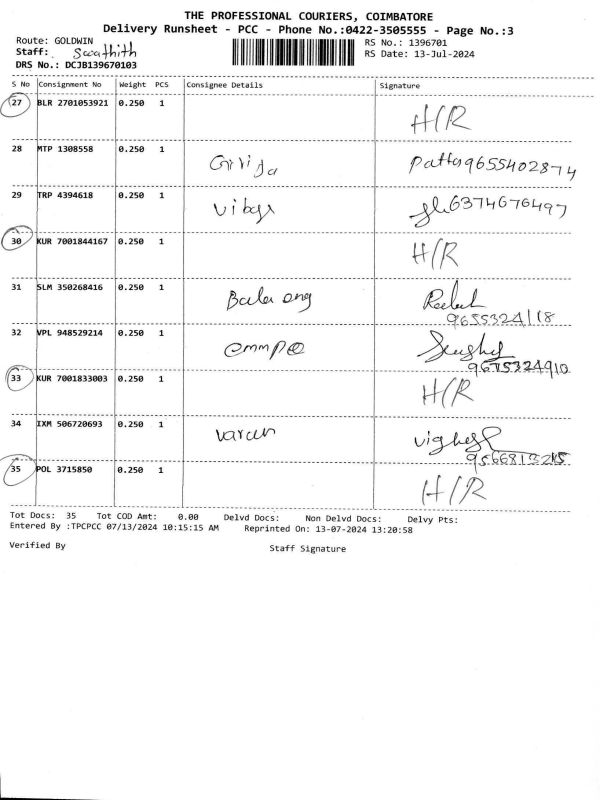 THE PROFESSIONAL COURIERS, COIMBATORE
Delivery Runsheet - PCC - Phone No.:0422-3505555 - Page No.:3
Route: GOLDWIN RS No.: 1396701
Staff: Swathith RS Date: 13-Jul-2024
DRS No.: DCJB139670103
S No Consignment No Weight PCS Consignee Details Signature
27 BLR 2701053921 0.250 1 H/R
28 MTP 1308558 0.250 1 9655402874
29 TRP 4394618 0.250 1 6374676497
30 KUR 7001844167 0.250 1 H/R
31 SLM 350268416 0.250 1 Bala eng
9655324118
32 VPL 948529214 0.250 1
33 KUR 7001833003 0.250 1 H/R
34 IXM 506720693 0.250 1 varun
35 POL 3715850 0.250 1 H/R
Tot Docs: 35 Tot COD Amt: 0.00 Delvd Docs: Non Delvd Docs: Delvy Pts:
Entered By :TPCPCC 07/13/2024 10:15:15 AM Reprinted On: 13-07-2024 13:20:58
Verified By Staff Signature